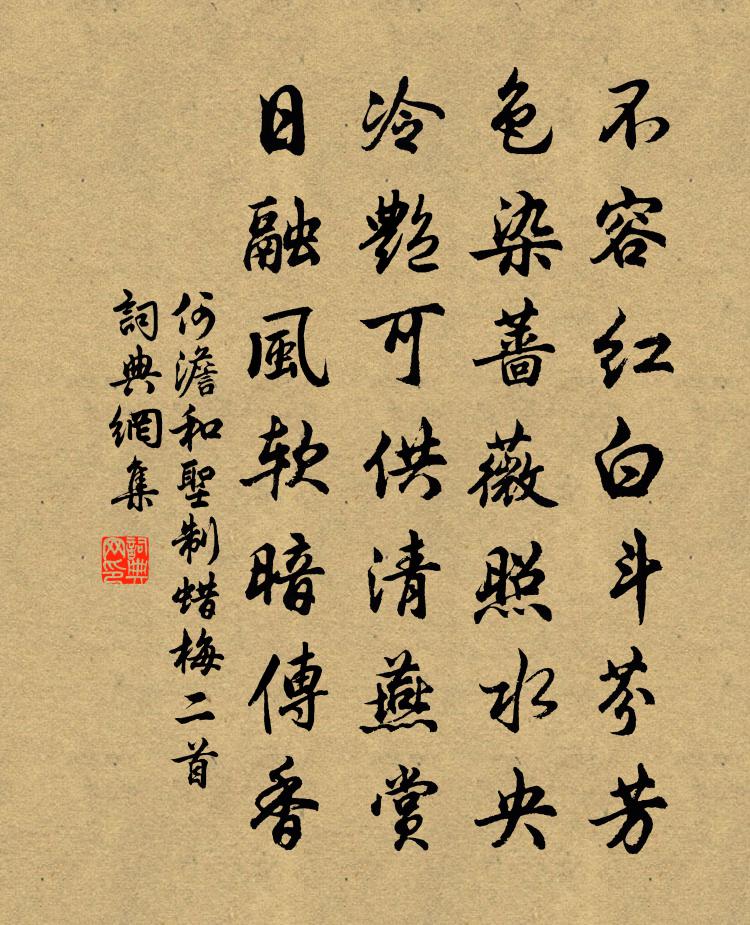 不容红白斗芬芳
色染薔薇照水央
冷艷可供清燕赏
日融風软暗傳香
何澹和聖制蜡梅二首
詞典網集
詞典
网印